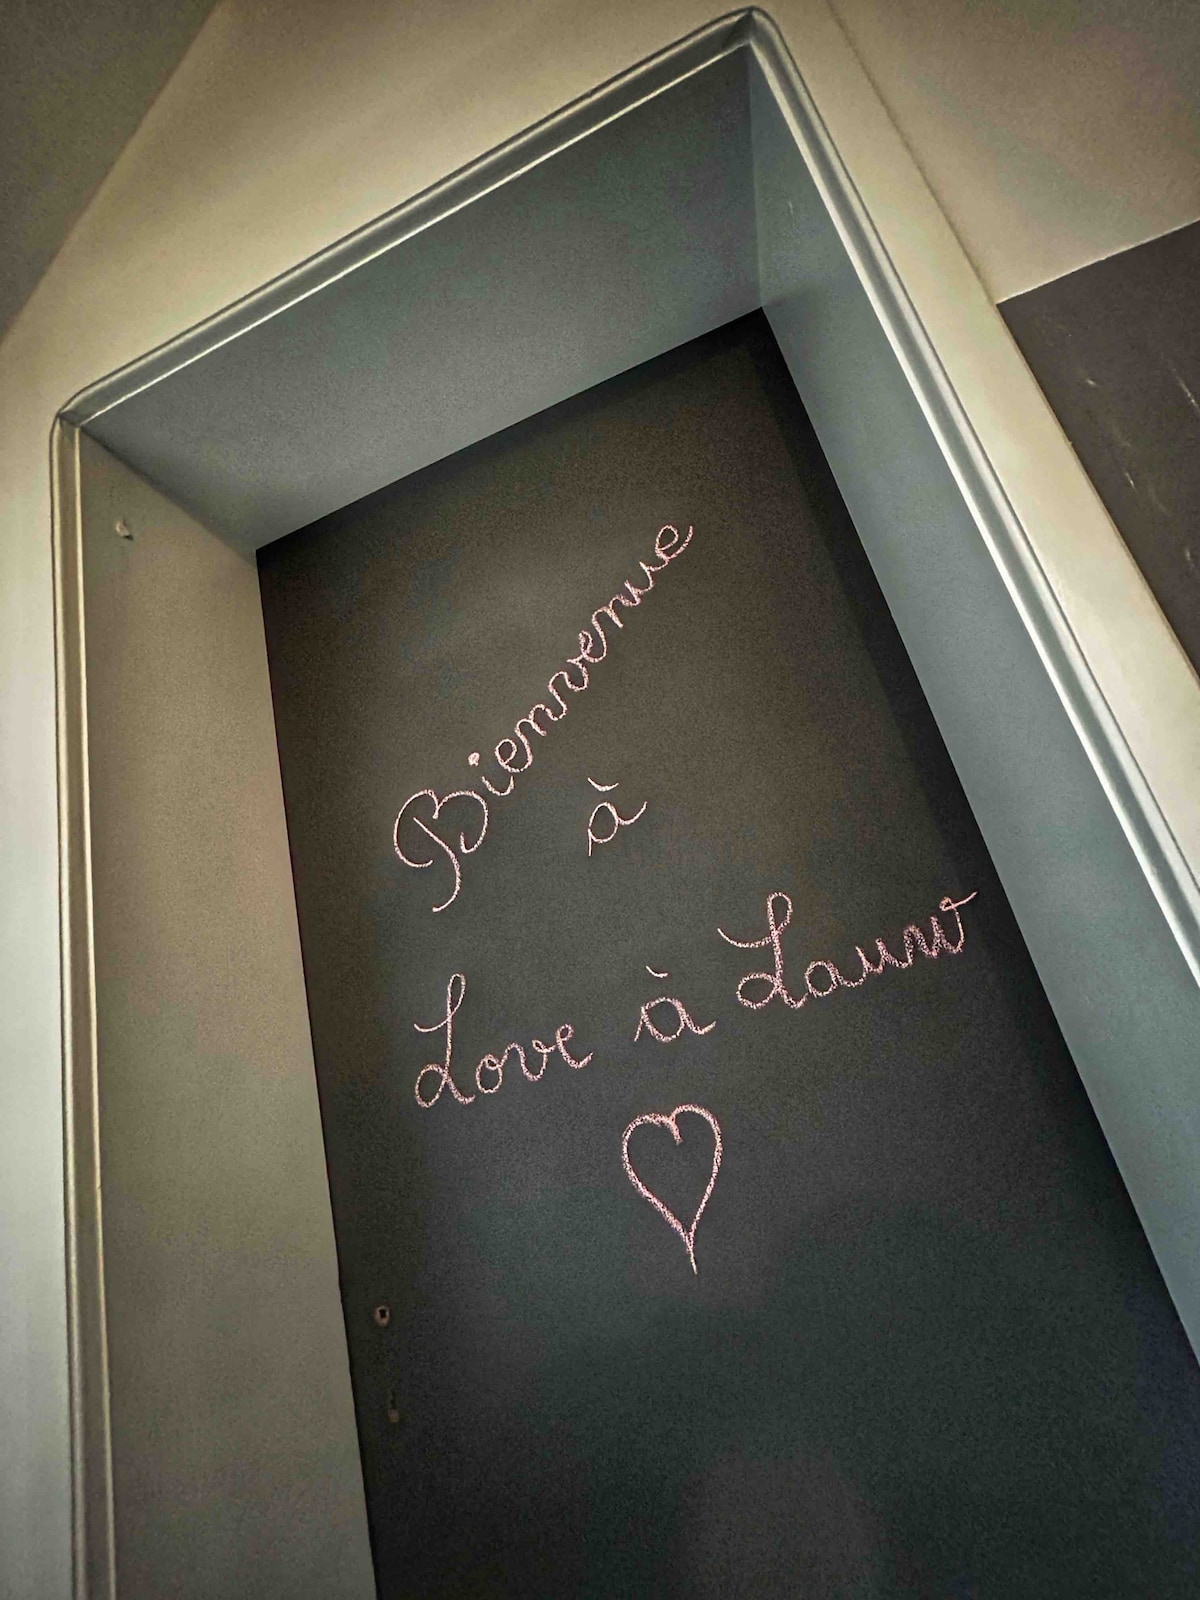 Bienvenue
à
Love à Lauw